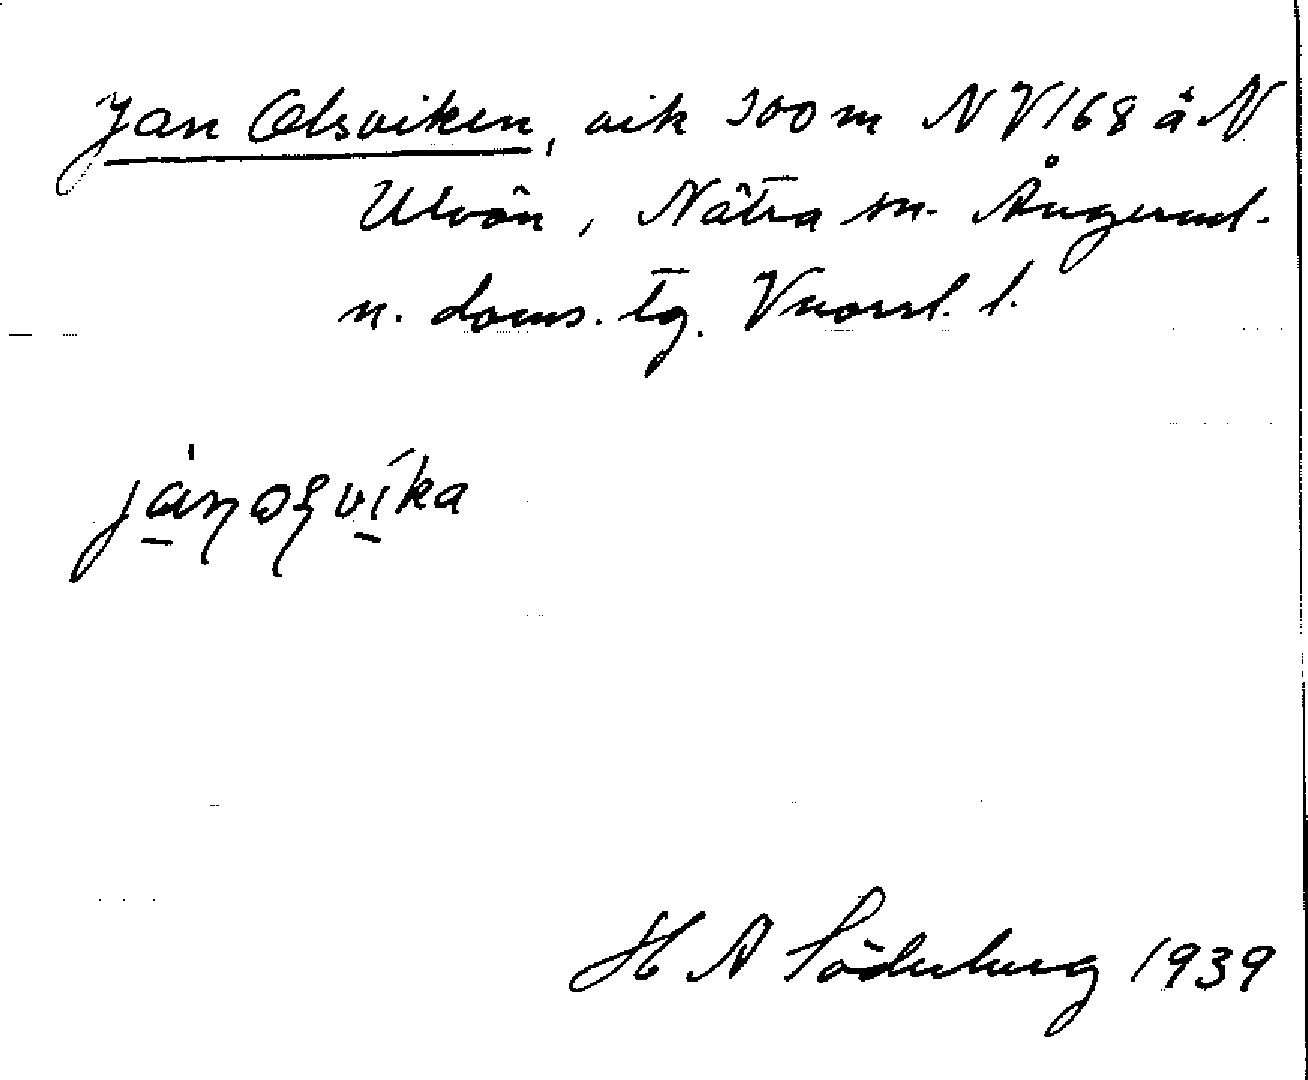 Jan Olsviken, vik 300 m NV 168 å N
Ulvön, Nätra sn. Ångerml.
n. doms. tg. Vnorrl. l.
jánǫʂvíka
H A Söderberg 1939